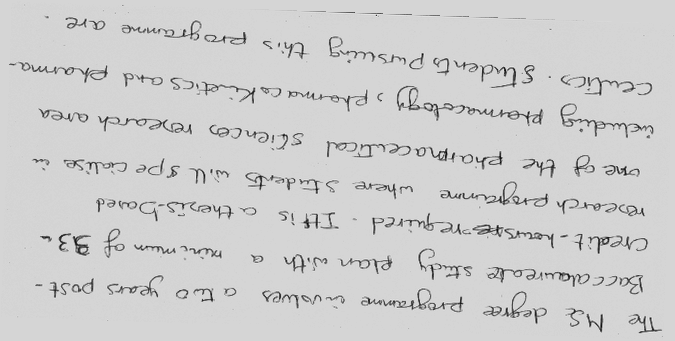 The MS degree programme involves a two years post-
Baccalaureate study plan with a minimum of 33-
credit-hours required. It is a thesis-based
research programme where students will specialise in
one of the pharmaceutical sciences research area
including pharmacology, pharmacokinetics and pharma-
ceutics. Students pursuing this programme are.